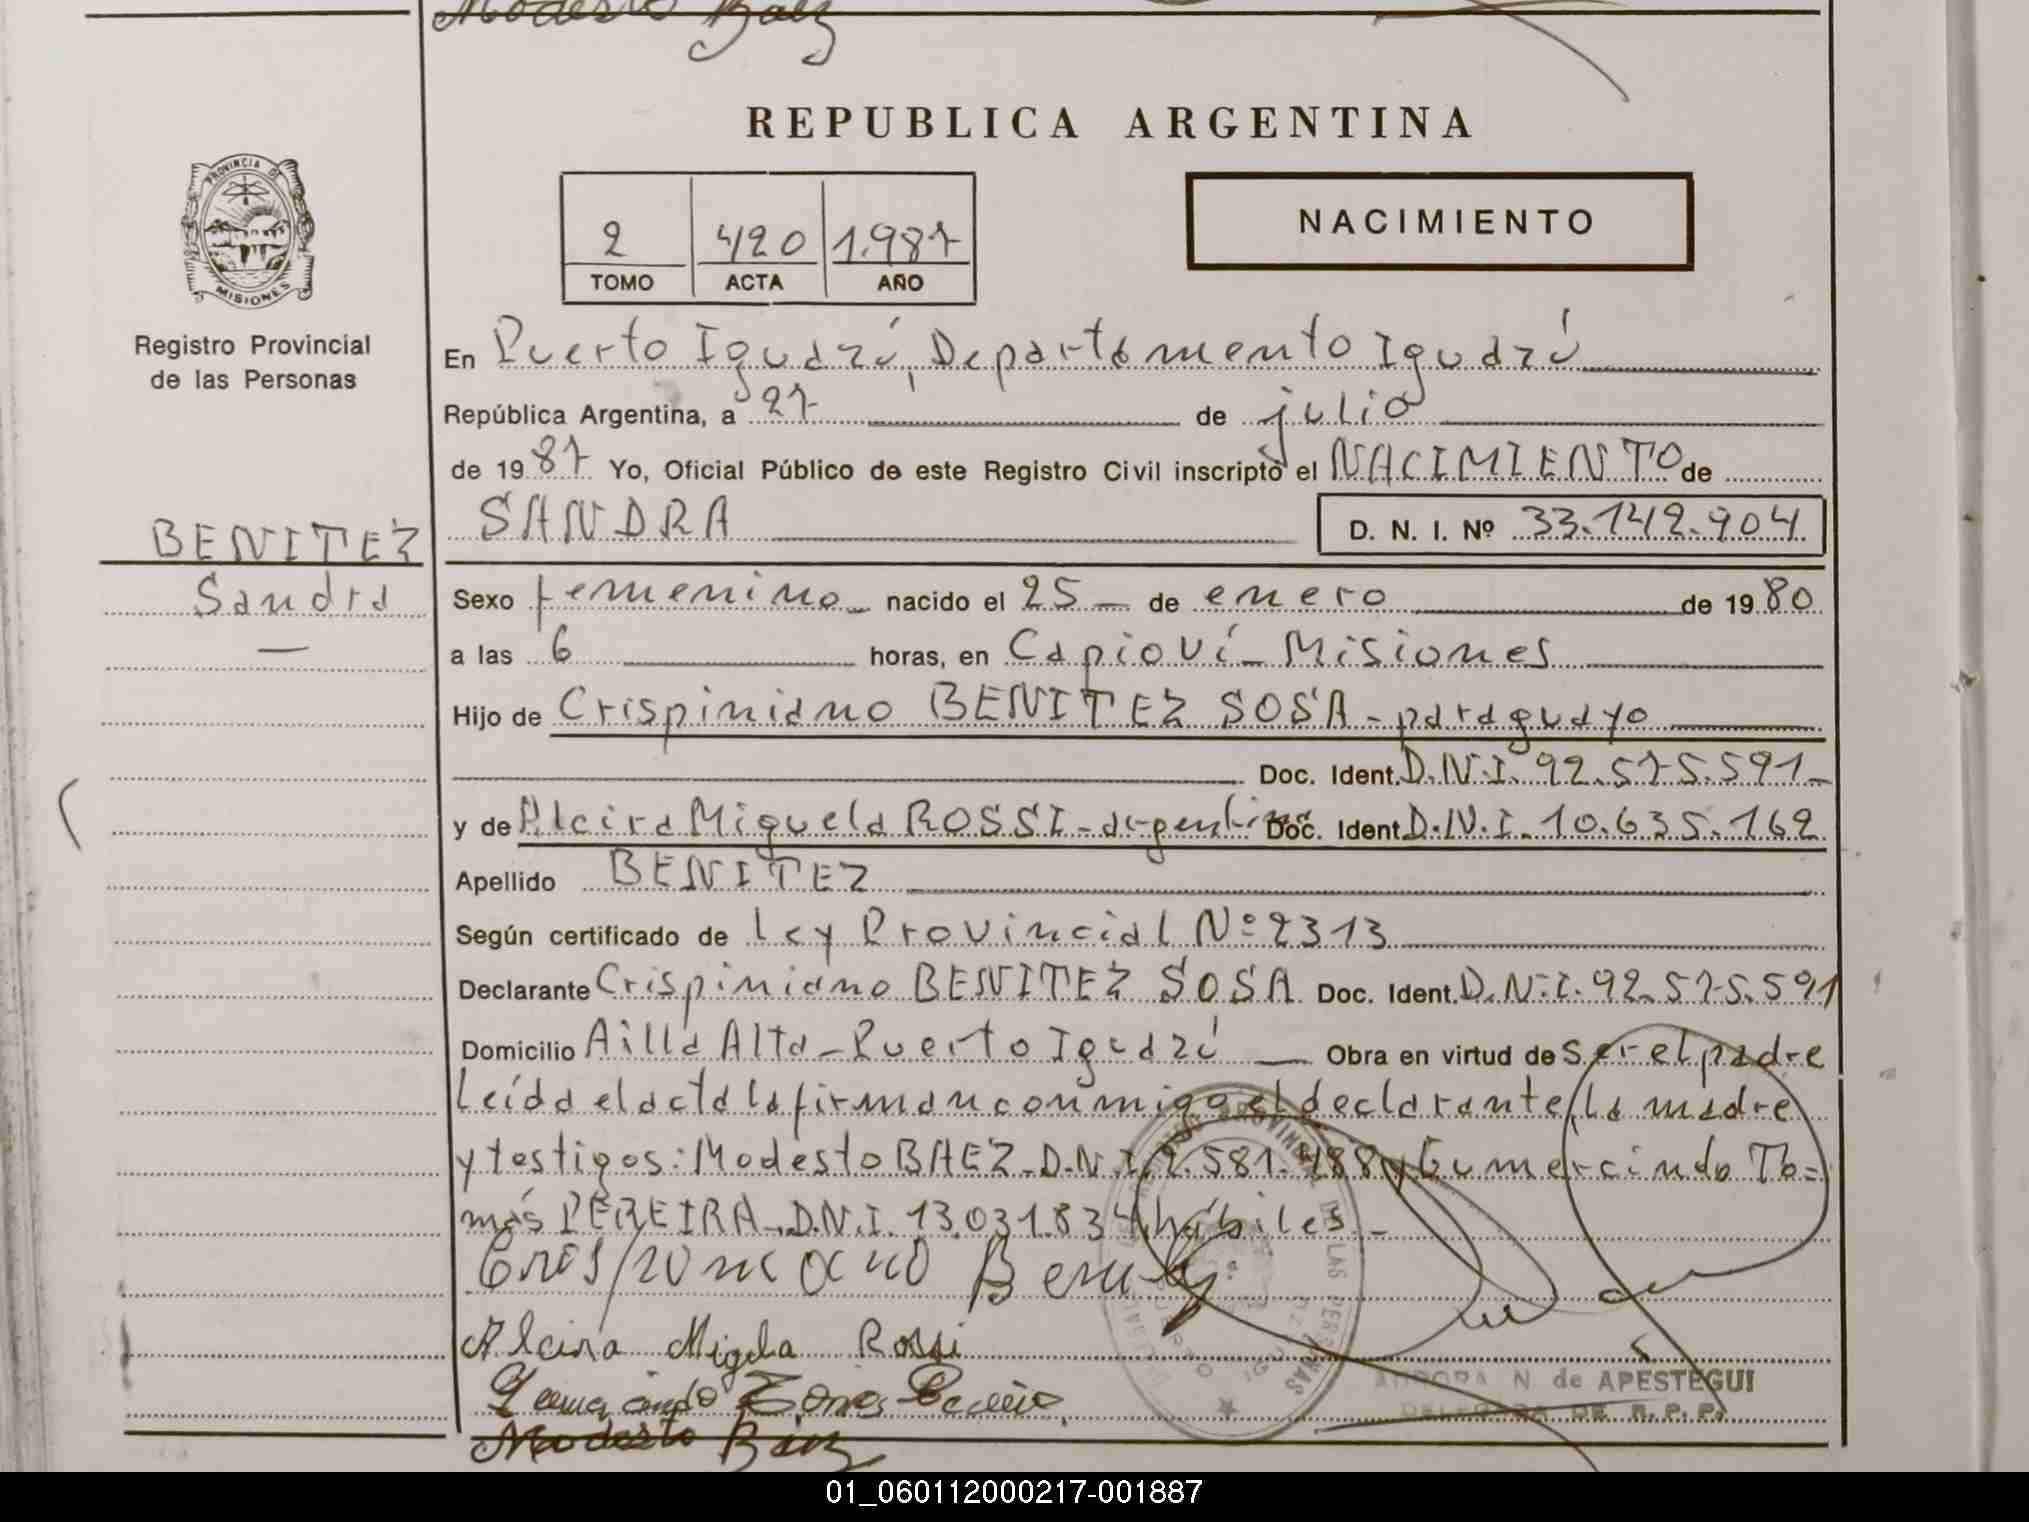 Modesto Baez
REPUBLICA ARGENTINA
PROVINCIA D
MISIONES
Registro Provincial
de las Personas
2 420 1.987
TOMO ACTA AÑO
NACIMIENTO
En Puerto Iguazú, Departamento Iguazú
República Argentina, a 27 de julio
de 1987 Yo, Oficial Público de este Registro Civil inscripto el NACIMIENTO de
SANDRA D. N. I. Nº 33.142.904
BENITEZ
Sandra
Sexo femenino nacido el 25 de enero de 1980
a las 6 horas, en Capioví - Misiones
Hijo de Crispiniano BENITEZ SOSA - paraguayo
Doc. Ident. D.N.I. 92.575.591
y de Alcira Miguela ROSSI - argentina Doc. Ident D.N.I. 10.635.162
Apellido BENITEZ
Según certificado de Ley Provincial Nº 2313
Declarante Crispiniano BENITEZ SOSA Doc. Ident. D.N.I. 92.575.591
Domicilio A illa Alta - Puerto Iguazú Obra en virtud de ser el padre
Leída el acta la firman conmigo el declarante, la madre
y testigos: Modesto BAEZ - D.N.I. 581.488 y Gumercindo To=
más PEREIRA - D.N.I. 13.031.834 hábiles -
Alcira Migela Rossi
AURORA N. de APESTEGUI
DELEGADA DE R.P.P.
Modesto Baez
01_060112000217-001887